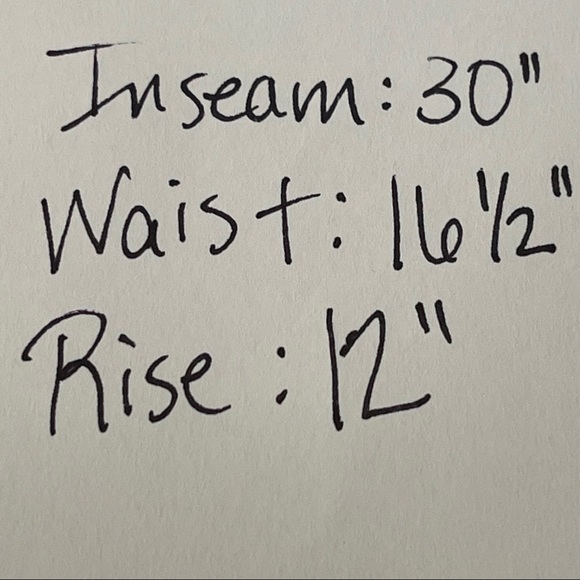 Inseam: 30"
Waist: 16 1/2"
Rise: 12"